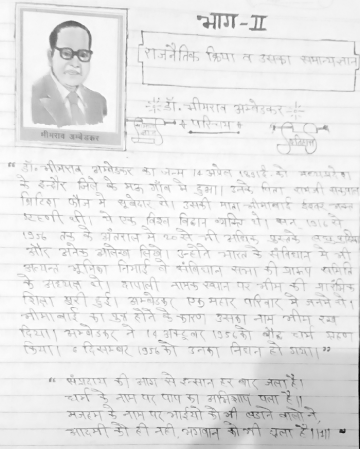 भाग-II
राजनैतिक क्रिया व उसका सामान्यज्ञान
डॉ. भीमराव अम्बेडकर
परिचय
भीमराव अम्बेडकर
"डॉ. भीमराव अम्बेडकर का जन्म 14 अप्रैल को
के इन्दौर जिले के महू गाँव में हुआ। उनके पिता
ब्रिटिश फौज में सूबेदार थे। उसकी माता भीमाबाई
थी। वे एक विद्वान व्यक्ति थे। सन्
1956 तक के अंतराल में 20 से भी अधिक पुस्तके
और अनेक लिखे। उन्होंने भारत के संविधान में भी
भूमिका निभाई व संविधान सभा की प्रारूप समिति
के अध्यक्ष थे। नामक स्थान पर भीम की प्रारंभिक
शिक्षा शुरू हुई। अम्बेडकर एक महार परिवार में जन्मे थे।
भीमाबाई का पुत्र होने के कारण उसका नाम भीम रख
दिया। अम्बेडकर ने 14 अक्टूबर 1956 को बौद्ध धर्म ग्रहण
किया। 6 दिसम्बर 1956 को उनका निधन हो गया।"
"संप्रदाय की आग से इन्सान हर बार जला है।
धर्म के नाम पर पाप का पला है॥
मजहब के नाम पर भाईयों को भी लड़ाने वालों ने,
आदमी को ही नहीं, भगवान को भी छला है॥1॥"